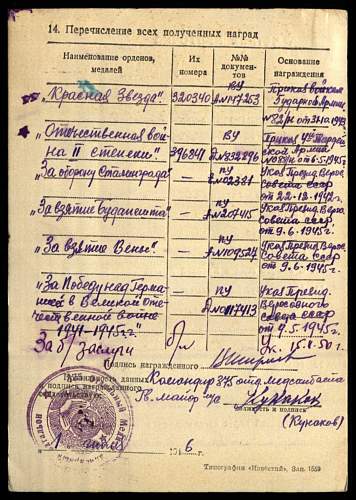 14. Перечисление всех полученных наград
Наименование орденов, медалей
Их номера
№№ документов
Основание награждения
"Красная Звезда".
320340
ВУ
А№117253
Приказ войскам
Ударной Армии
"Отечественная вой-
на II степени".
396841
ВУ
Д№832896
Приказ 4уд Гвардей-
ской Армии
от 6.5.1945г.
"За оборону Сталинграда"
—
ПУ
№02381
Указ Презид. Верхов.
Совета СССР
от 22.12.1942г.
"За взятие Будапешта"
—
ПУ
А№207415
Указ Презид. Верхов.
Совета СССР
от 9.6.1945г.
"За взятие Вены".
—
ПУ
А№109524
Указ Презид. Верхов.
Совета СССР
от 9.6.1945г.
"За Победу над Герма-
нией в Великой Оте-
чественной войне
1941-1945гг."
—
ПУ
А№0117413
Указ Презид.
Верховного
Совета СССР
от 9.5.1945г.
За б/заслуги
15.1.50г.
Подпись награжденного
Правильность данных
и подпись награжденного
Командир 375 отд. Медсанбата
Гв. майор м/с
(должность и подпись)
(Кунаков)
194 6
Типография «Известий», Зак. 1559